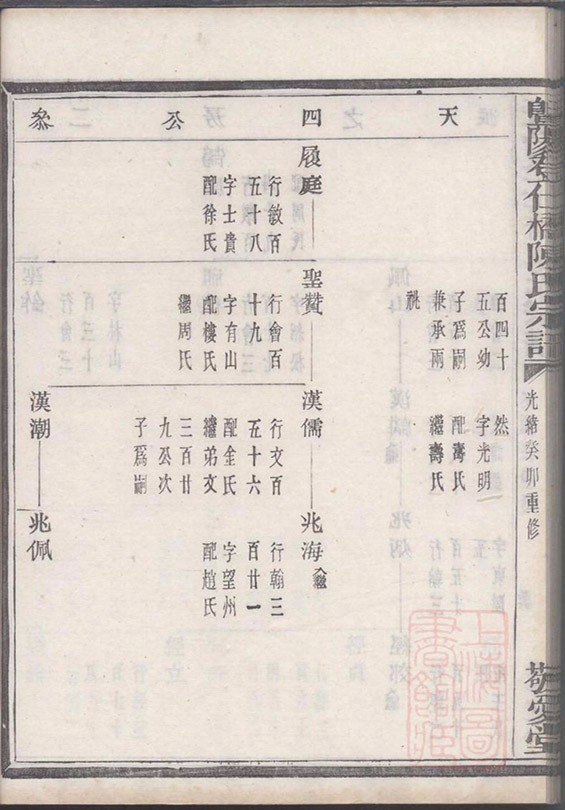 暨陽卷仁橋陳氏宗譜
光緒癸卯重修
敬愛堂
天
四
公
叅
二
房
之
百四十
五公幼
子爲嗣
兼承兩
祧
然
字光明
配壽氏
繼壽氏
履庭
行敏百
五十八
字士貴
配徐氏
聖贊
行會百
十九
字有山
配樓氏
繼周氏
漢儒
行文百
五十六
配金氏
繼弟文
三百廿
九公次
子爲嗣
兆海 入繼
行翰三
百廿一
字望州
配趙氏
漢潮
兆佩
上海圖
書館藏